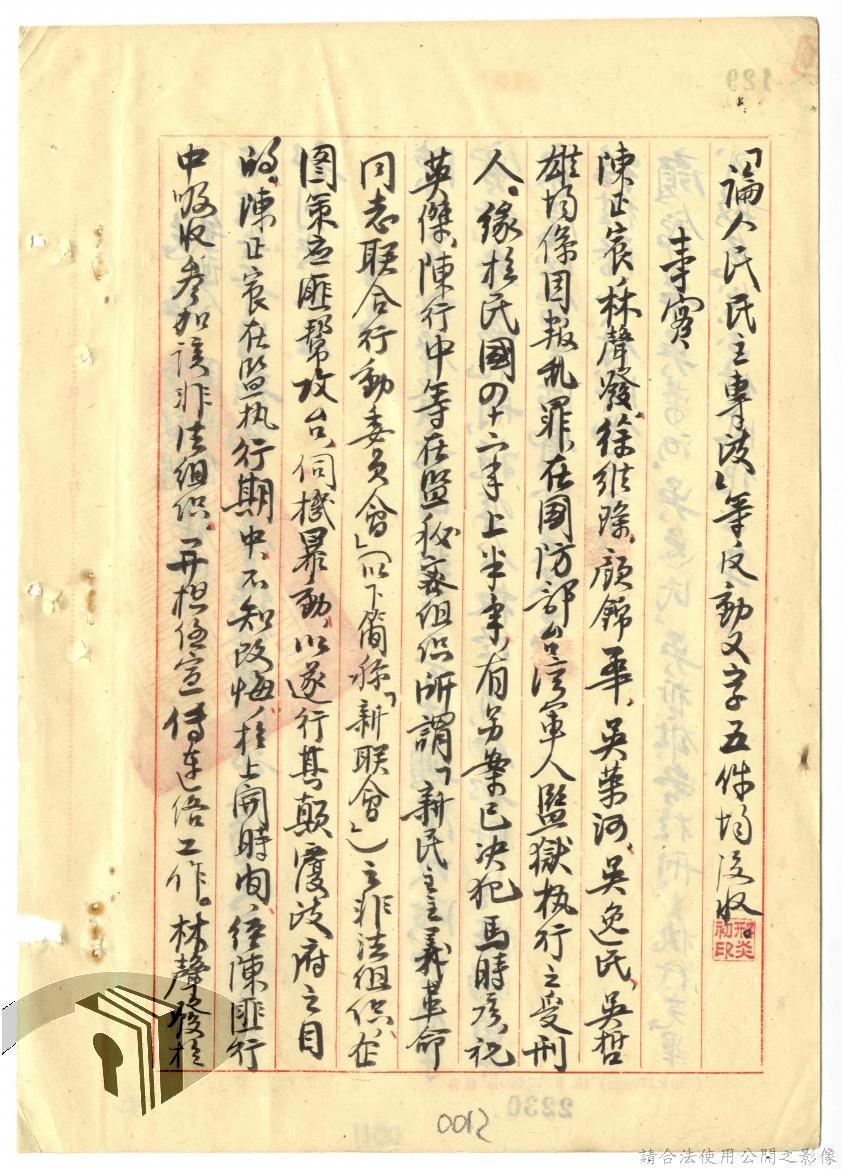 129
「論人民民主專政」等反動文字五件均沒收。
邢炎初印
事實
陳正宸、林聲發、徐維琛、顧錦平、吳榮河、吳逸民、吳哲
雄均係因叛亂罪,在國防部台灣軍人監獄執行之受刑
人。緣於民國四十二年上半年,有另案已決犯馬時彥、祝
英傑、陳行中等在監秘密組織所謂「新民主主義革命
同志联合行動委員會」(以下簡称「新联會」)之非法組織,在
图策应匪幫攻台,伺機暴動,以遂行其顛覆政府之目
的。陳正宸在監执行期中,不知改悔,於上開時間,經陳匪行
中吸收參加該非法組織,并担任宣傳連络工作。林聲發於
2230
0012
請合法使用公開之影像